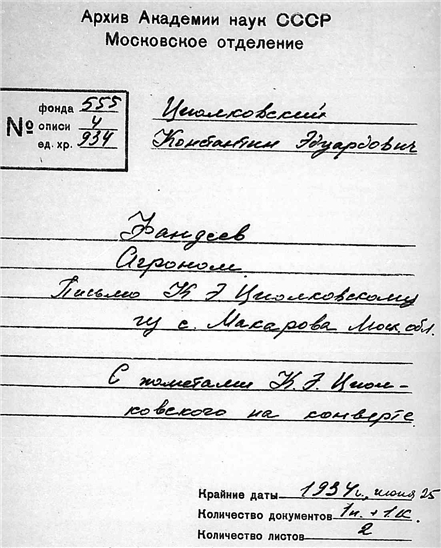 Архив Академии наук СССР
Московское отделение
№
фонда 555
описи 4
ед. хр. 934
Циолковский
Константин Эдуардович
Фандеев
Агроном
Письмо К Э Циолковскому
из с. Макарова Моск. обл.
С пометами К. Э. Циол-
ковского на конверте
Крайние даты 1934 г., июня 25
Количество документов 1п. + 1к.
Количество листов 2